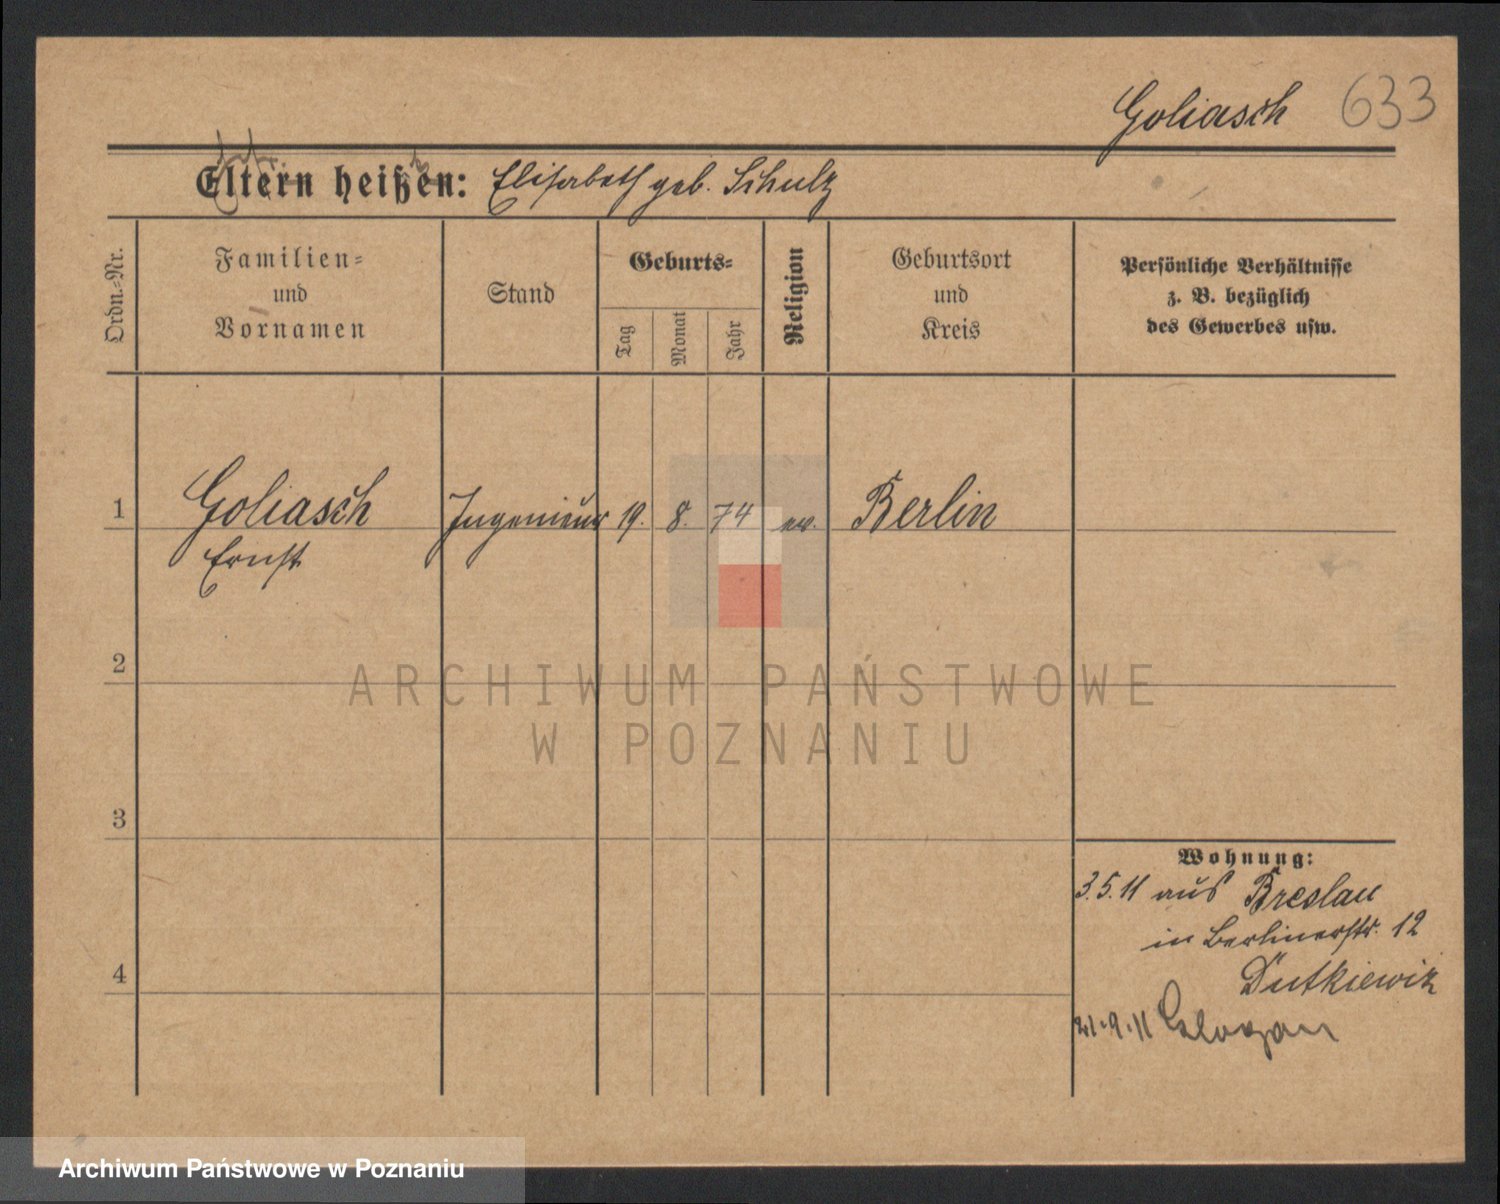 Goliasch 633
Eltern heißen: Elisabeth geb. Schulz
Ordn.-Nr.
Familien-
und
Vornamen
Stand
Geburts-
Tag
Monat
Jahr
Religion
Geburtsort
und
Kreis
Persönliche Verhältnisse
z. B. bezüglich
des Gewerbes usw.
1 Goliasch Ingenieur 19. 8. 74 ev. Berlin
Ernst
2
ARCHIWUM PAŃSTWOWE
W POZNANIU
3
Wohnung:
3.5.11 aus Breslau
in Berlinerstr. 12
4 Dutkiewiz
21.9.11 Glogau
Archiwum Państwowe w Poznaniu